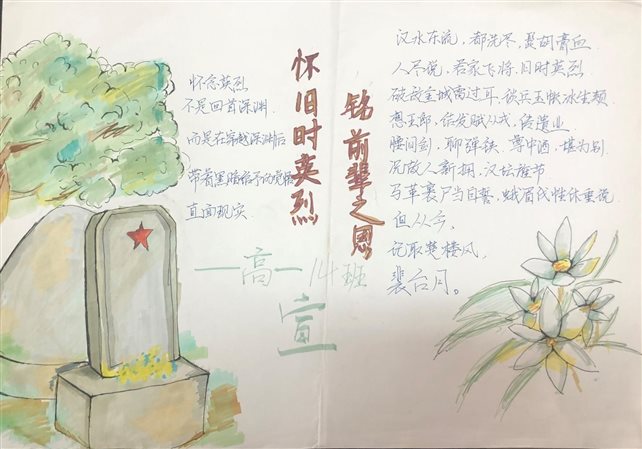 怀念英烈
不是回首深渊
而是在穿越深渊后
带着黑暗给予的觉悟
直面现实
怀旧时英烈
铭前辈之恩
一高一14班
宣
汉水东流,都洗尽,髭胡膏血.
人尽说,君家飞将,旧时英烈.
破敌金城雷过耳,谈兵玉帐冰生颊.
想王郎,结发赋从戎,传遗业.
腰间剑,聊弹铗,尊中酒,堪为别.
况故人新拥,汉坛旌节.
马革裹尸当自誓,蛾眉伐性休重说.
但从今,
记取楚楼风,
裴台月。